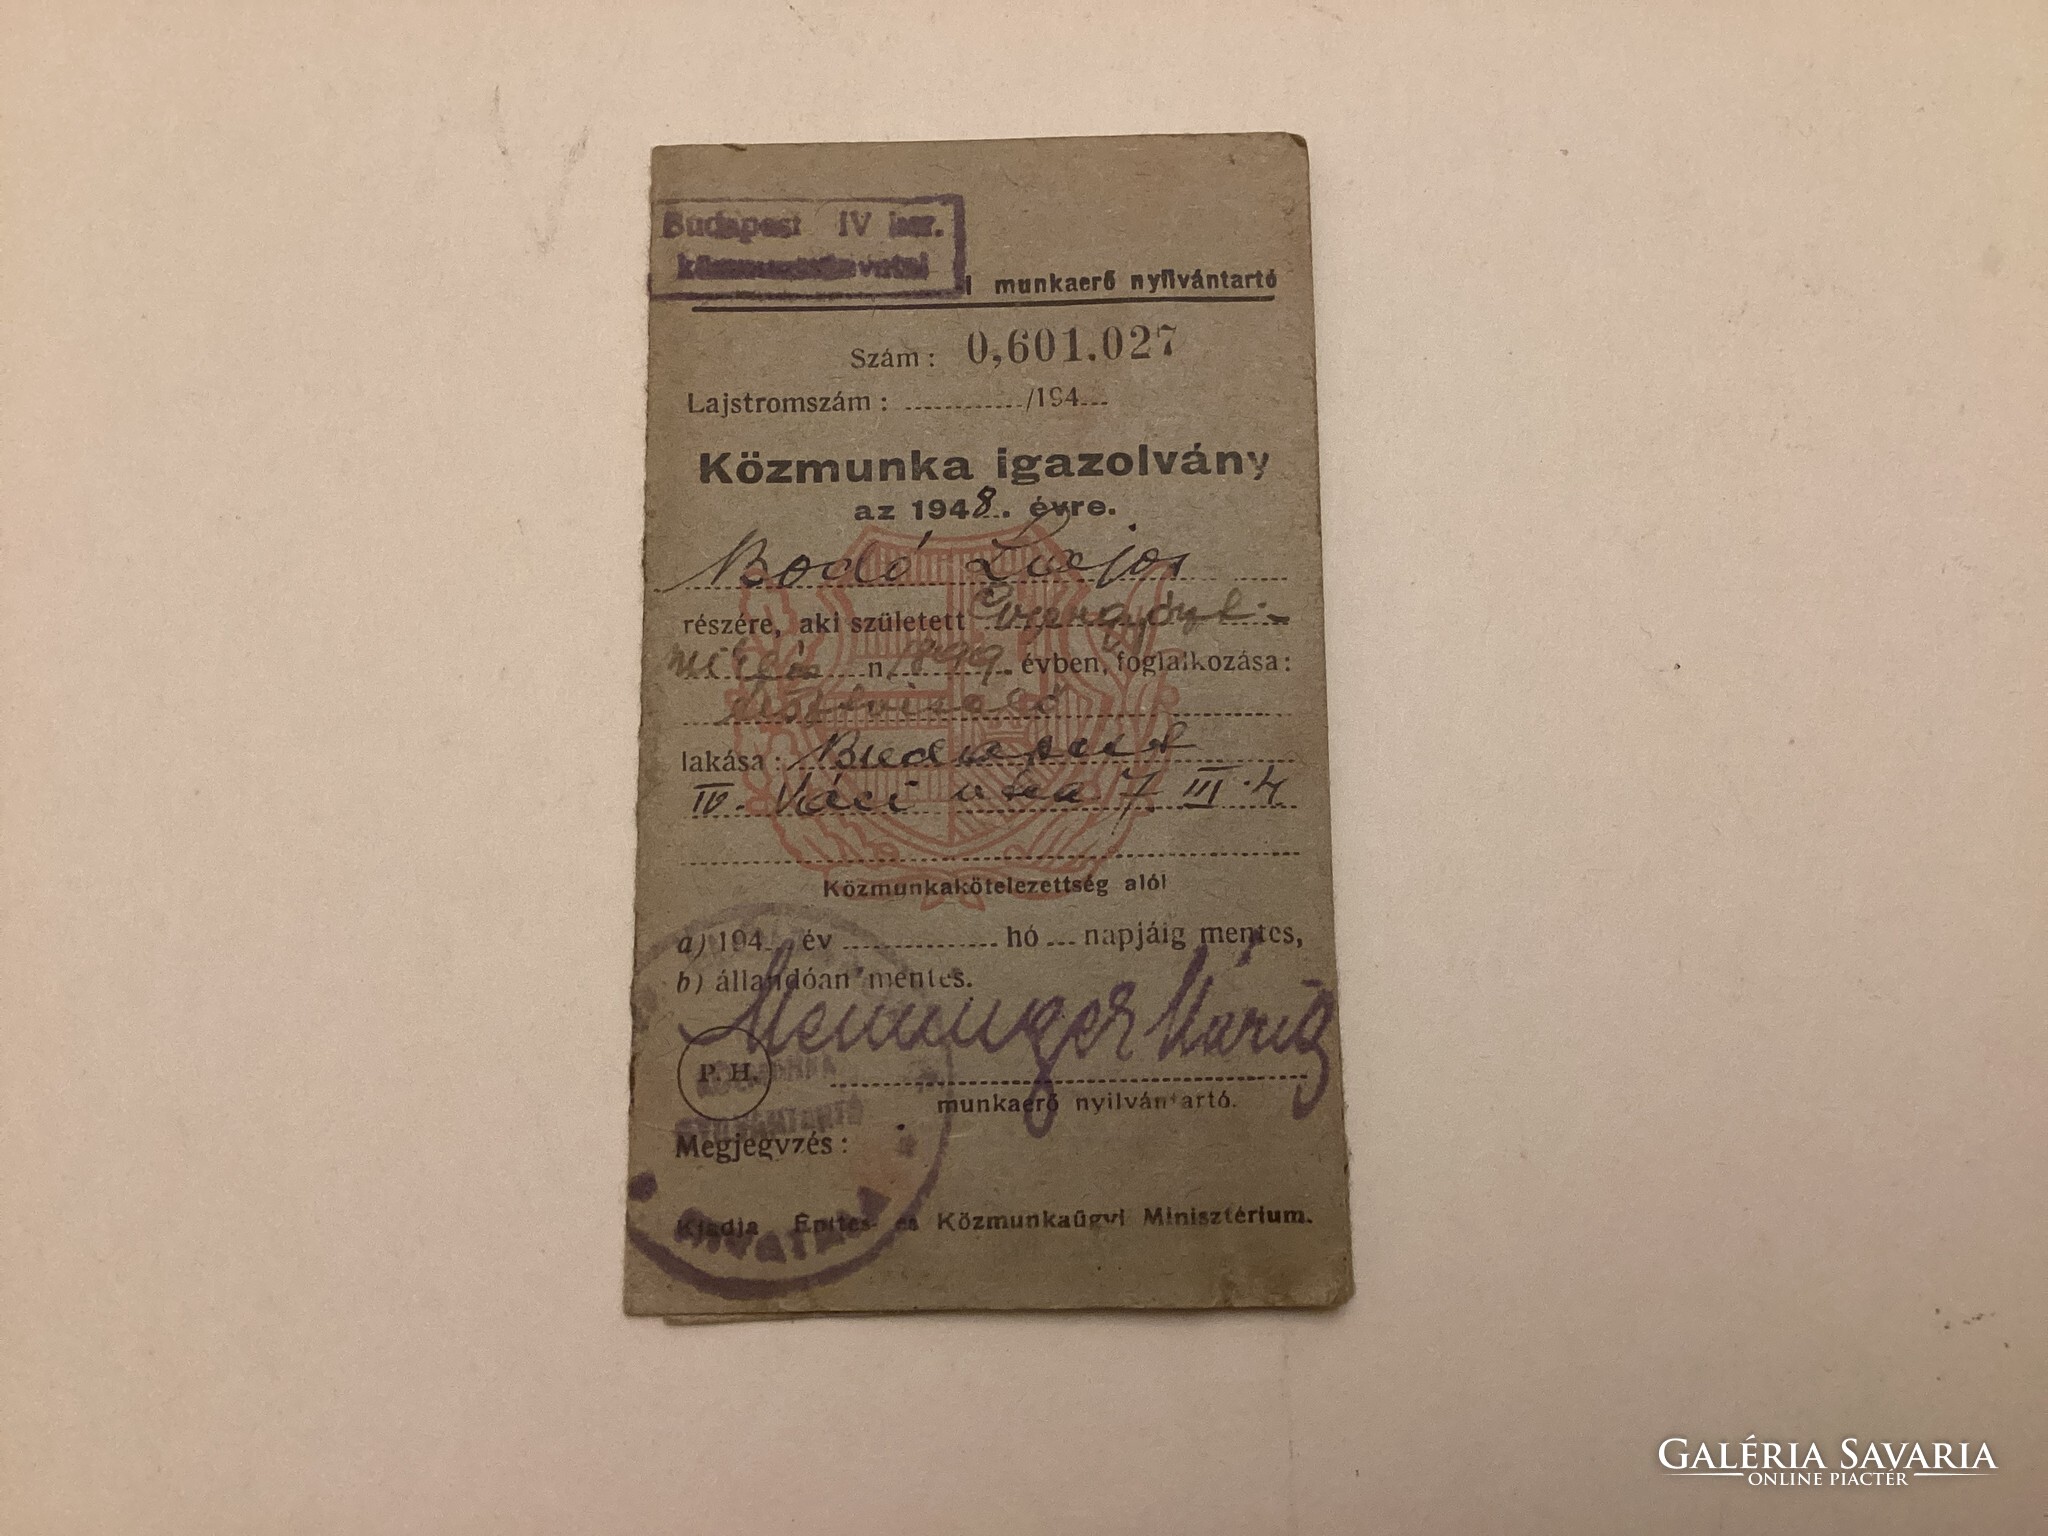 Budapest IV ker.
munkaerő nyilvántartó
Szám: 0,601.027
Lajstromszám: /194
Közmunka igazolvány
az 1948. évre.
Bodó Lajos
részére, aki született
n. 1899. évben, foglalkozása:
lakása: Budapest
IV. Váci utca 7 III. 4
Közmunkakötelezettség alól
a) 194 év hó napjáig mentes,
b) állandóan mentes.
Menninger Mária
P. H.
munkaerő nyilvántartó.
NYILVÁNTARTÓ
Megjegyzés:
Kiadja Építés- és Közmunkaügyi Minisztérium.
GALÉRIA SAVARIA
ONLINE PIACTÉR